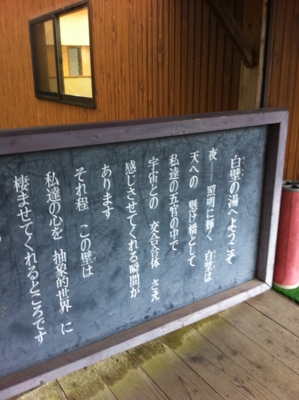 白壁の湯へようこそ
夜──照明に輝く 白壁は
天への 懸け橋として
私達の五官の中で
宇宙との 交合合体 さえ
感じさせてくれる瞬間が
あります
それ程 この壁は
私達の心を 抽象的世界 に
棲ませてくれるところです